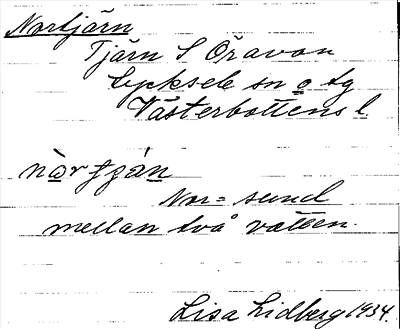 Nortjärn
Tjärn S Öravan
Lycksele sn o tg
Västerbottens l.
Nor = sund
mellan två vatten.
Lisa Lidberg 1934.